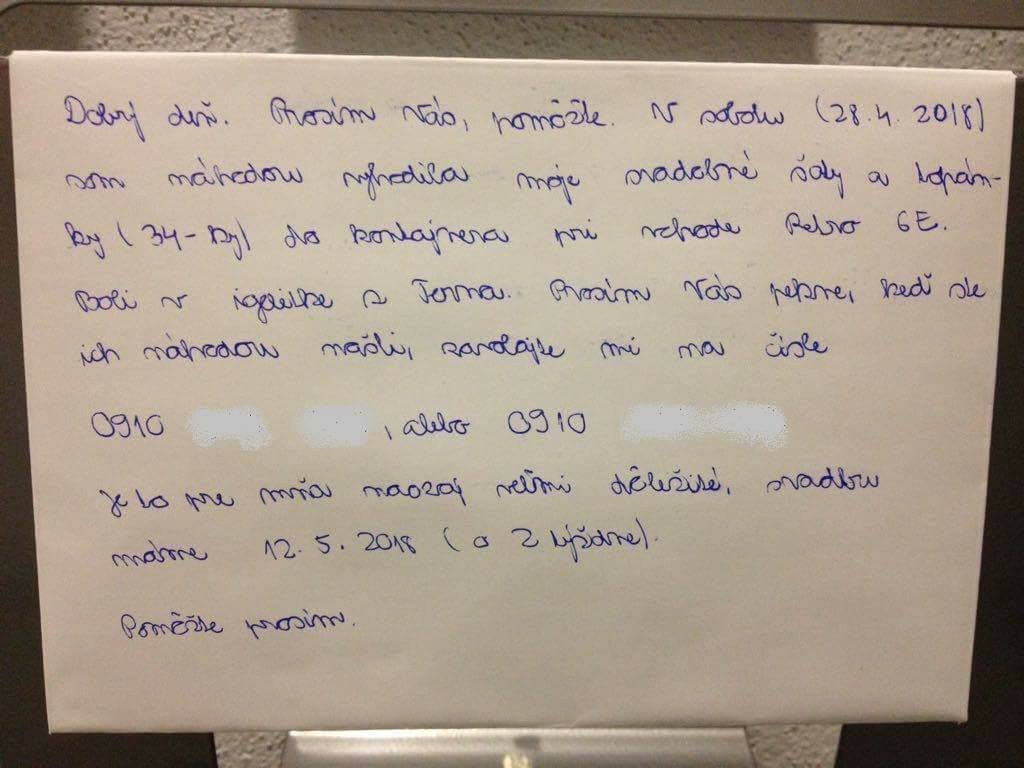 Dobrý deň. Prosím Vás, pomôžte. V sobotu (28.4.2018)
som náhodou vyhodila moje svadobné šaty a topán-
ky (34-ky) do kontajnera pri vchode Pebro 6E.
Boli v igelitke z Terna. Prosím Vás pekne, keď ste
ich náhodou našli, zavolajte mi na čísle
0910 , alebo 0910
Je to pre mňa naozaj veľmi dôležité, svadbu
máme 12.5.2018 (o 2 týždne).
Pomôžte prosím.